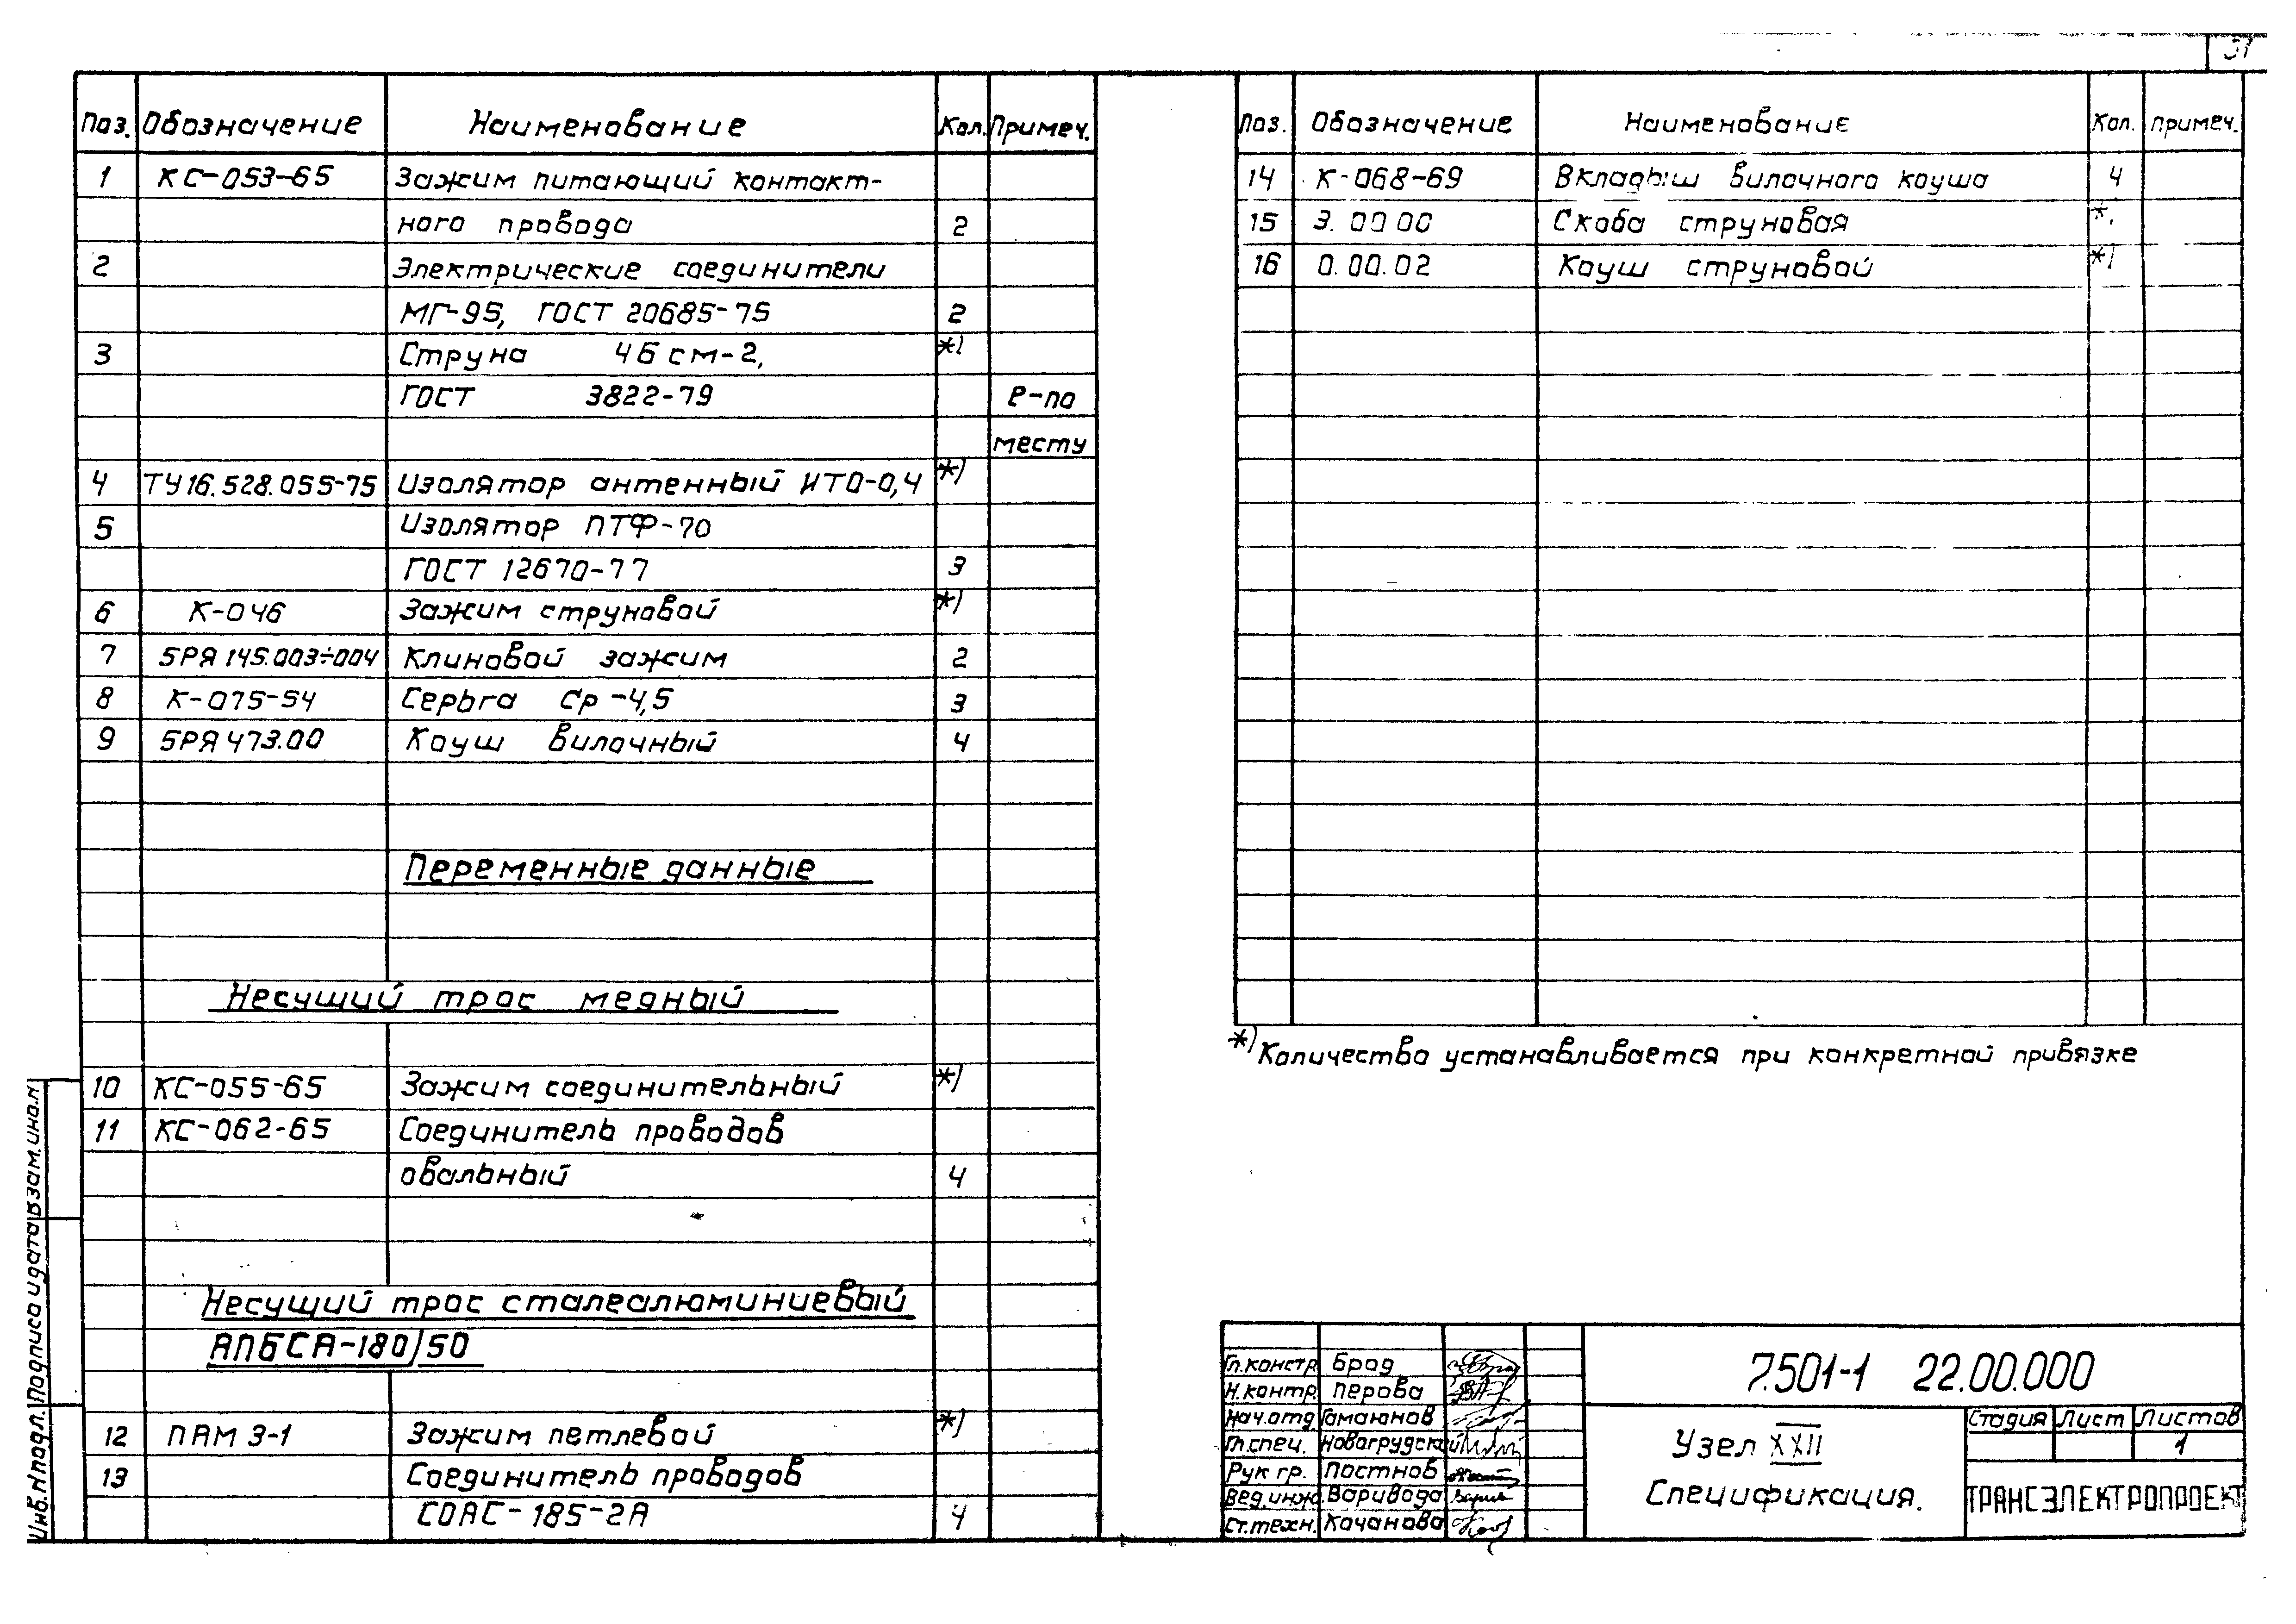 Поз. Обозначение Наименование Кол. Примеч.
1 КС-053-65 Зажим питающий контакт-
ного провода 2
2 Электрические соединители
МГ-95, ГОСТ 20685-75 2
3 Струна 4БСМ-2, *)
ГОСТ 3822-79 ℓ-по
месту
4 ТУ16.528.055-75 Изолятор антенный ИТО-0,4 *)
5 Изолятор ПТФ-70
ГОСТ 12670-77 3
6 К-046 Зажим струновой *)
7 5РЯ 145.003÷004 Клиновой зажим 2
8 К-075-54 Серьга Ср-4,5 3
9 5РЯ 473.00 Коуш вилочный 4
Переменные данные
Несущий трос медный
10 КС-055-65 Зажим соединительный *)
11 КС-062-65 Соединитель проводов
овальный 4
Несущий трос сталеалюминиевый
АПБСА-180/50
12 ПАМ 3-1 Зажим петлевой *)
13 Соединитель проводов
СОАС-185-2А 4
Поз. Обозначение Наименование Кол. Примеч.
14 К-068-69 Вкладыш вилочного коуша 4
15 3.0000 Скоба струновая *)
16 0.00.02 Коуш струновой *)
*) Количество устанавливается при конкретной привязке
Гл.констр. Брод
Н.контр. Перова
Нач.отд. Гамаюнов
Гл.спец. Новогрудский
Рук гр. Постнов
Вед.инж. Варивода
Ст.техн. Качанова
7.501-1 22.00.000
Узел XXII
Спецификация.
Стадия Лист Листов
1
ТРАНСЭЛЕКТРОПРОЕКТ
Инв.№подл. Подпись и дата Взам.инв.№